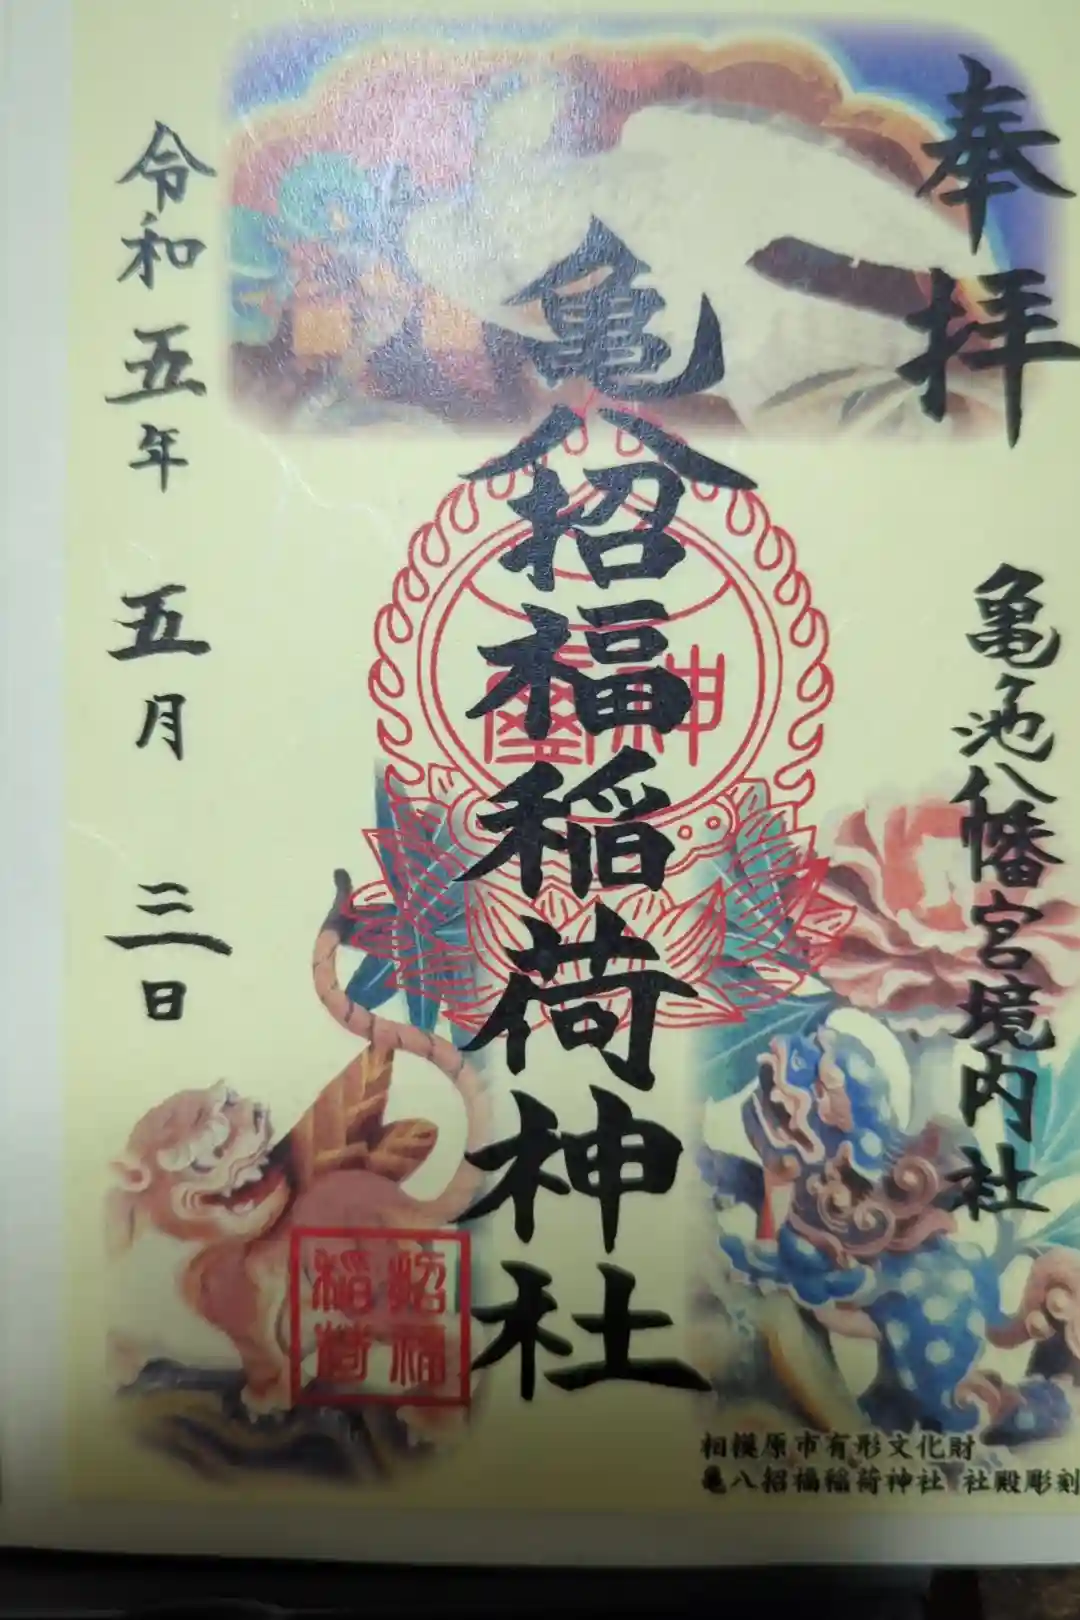 奉拝
亀ヶ池八幡宮境内社
亀八招福稲荷神社
神璽
招福
稲荷
令和五年五月三日
相模原市有形文化財
亀八招福稲荷神社 社殿彫刻